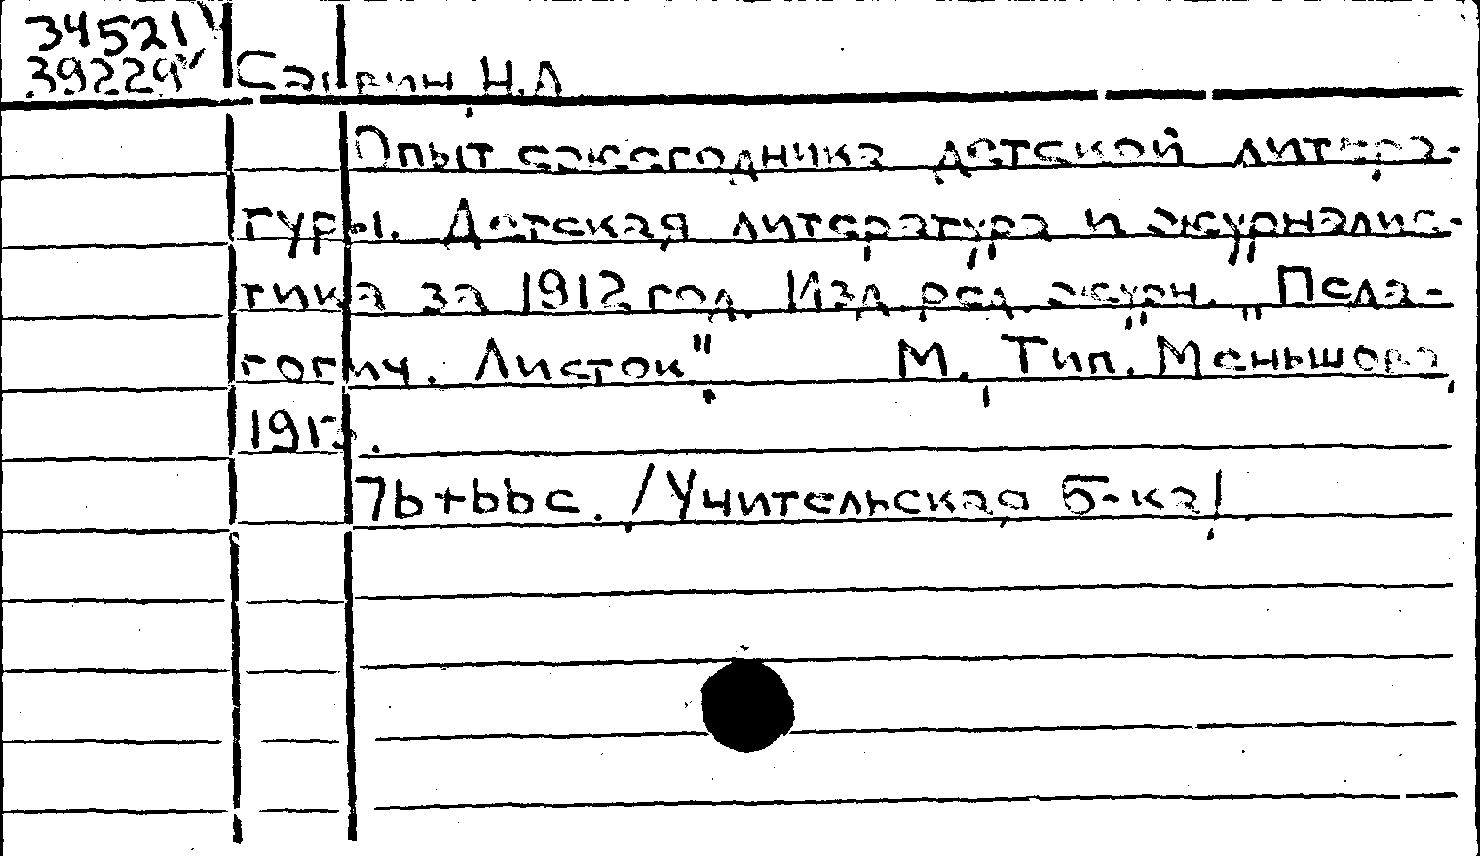 34521
39229 Саввин, Н.А.
Опыт ежегодника детской литера-
туры. Детская литература и журналис-
тика за 1912 год. Изд. ред. журн. "Педа-
гогич. Листок". М., Тип. Меньшова,
1913.
7b+bbc. /Учительская б-ка/.